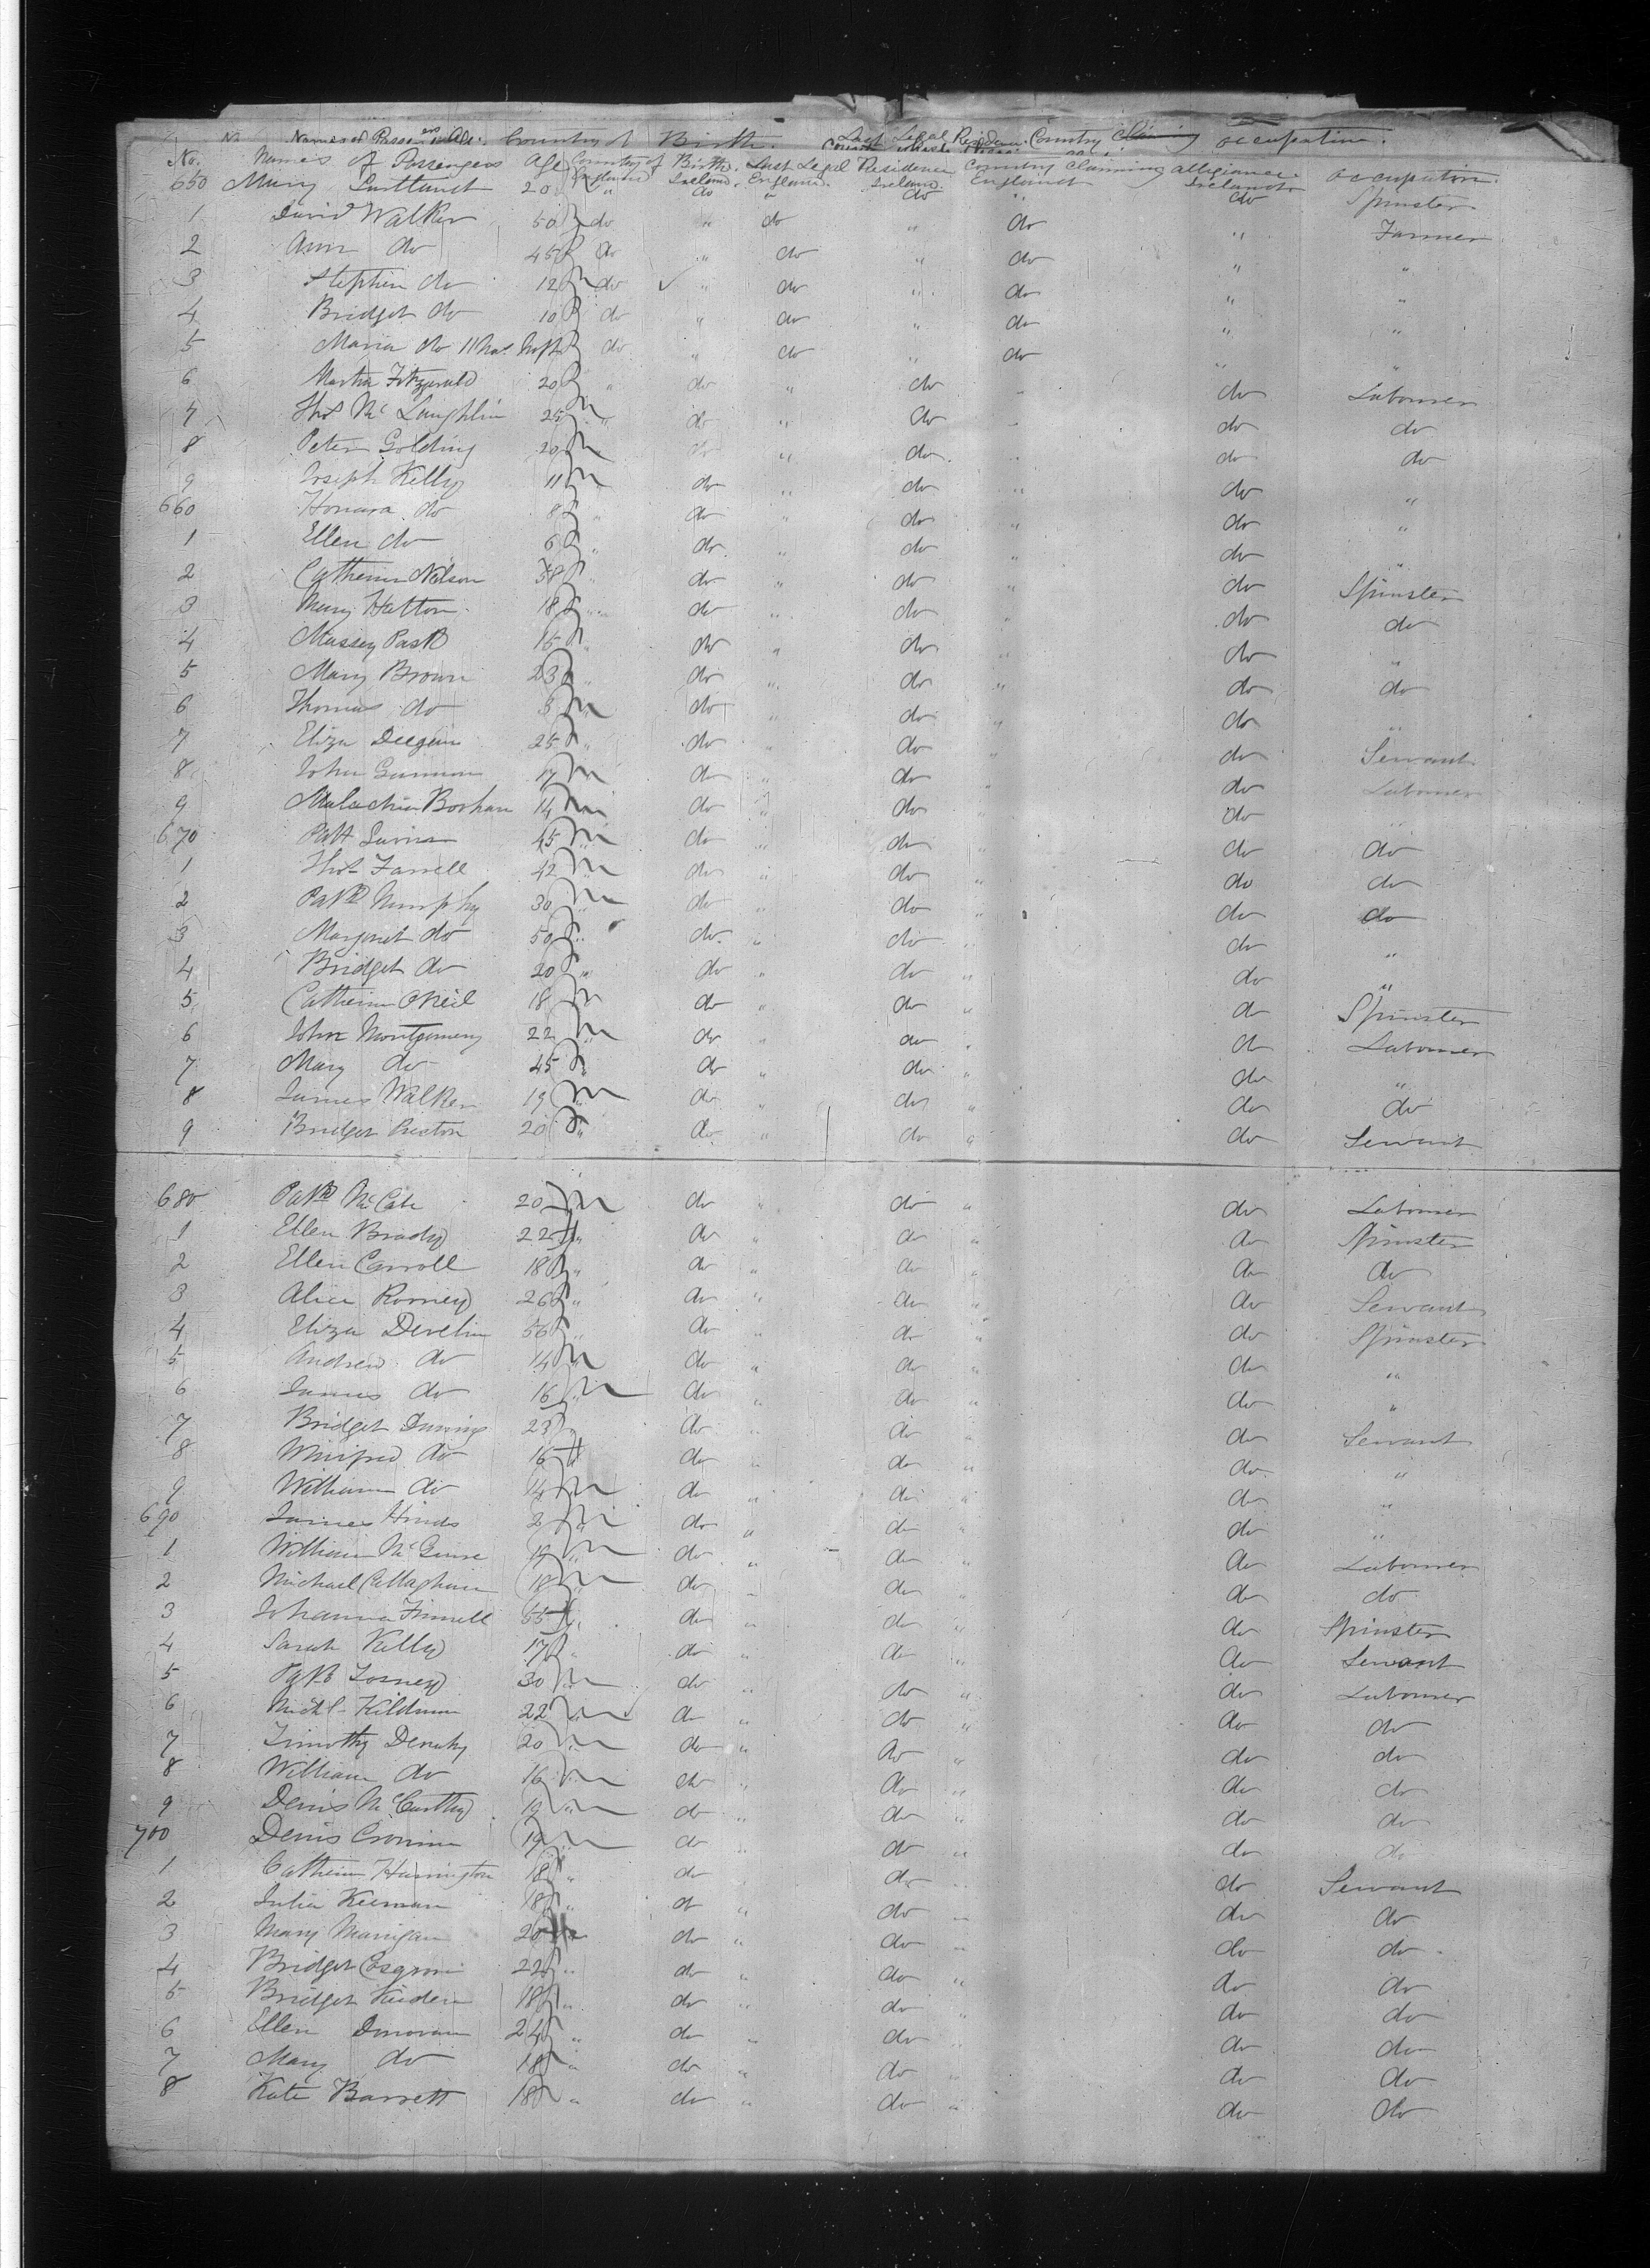 No. Names of Passen ers Age. Country of Birth. Last Legal Residence. Country Claiming occupation.
No. Names of Passengers Age Country of Birth. Last Legal Residence Country Claiming allegiance. occupation.
England Ireland. England. Ireland. England Ireland
650 Mary 20 " do " do " do Spinster
1 David Walker 50 do " do " do " Farmer
2 Ann do 45 do " do " do " "
3 Stephen do 12 do " do " do " "
4 Bridget do 10 do " do " do " "
5 Maria do 11 Mos do " do " do " "
6 Martin Fitzgerald 20 " do " do " do Labourer
7 Thos McLaughlin 25 " do " do " do do
8 Peter Golding 20 " do " do " do do
9 Joseph Kelly 11 " do " do " do "
660 Honara do 8 " do " do " do "
1 Ellen do 6 " do " do " do "
2 Catherine Nelson 38 " do " do " do Spinster
3 Mary Hatton 18 " do " do " do do
4 Massey 15 " do " do " do "
5 Mary Brown 23 " do " do " do do
6 Thomas do 3 " do " do " do "
7 Eliza Deegan 25 " do " do " do Servant
8 John Gunnon 17 " do " do " do Labourer
9 14 " do " do " do "
670 Patt 45 " do " do " do do
1 Thos Farrell 42 " do " do " do do
2 Patk Murphy 30 " do " do " do do
3 Margaret do 50 " do " do " do "
4 Bridget do 20 " do " do " do "
5 Catherine ONeil 18 " do " do " do Spinster
6 John Montgomery 22 " do " do " do Labourer
7 Mary do 45 " do " do " do "
8 James Walker 19 " do " do " do do
9 Bridget Preston 20 " do " do " do Servant
680 Patk McCabe 20 " do " do " do Labourer
1 Ellen Brady 22 " do " do " do Spinster
2 Ellen Carroll 18 " do " do " do do
3 Alice Rooney 26 " do " do " do Servant
4 Eliza Develin 56 " do " do " do Spinster
5 Andrew do 14 " do " do " do "
6 James do 16 " do " do " do "
7 Bridget 23 " do " do " do Servant
8 Winifred do 16 " do " do " do "
9 William do 14 " do " do " do "
690 James Hinds 2 " do " do " do "
1 William McGuire 19 " do " do " do Labourer
2 Michael Callaghan 18 " do " do " do do
3 Johanna Finnell 55 " do " do " do Spinster
4 Sarah Kelly 17 " do " do " do Servant
5 Patk 30 " do " do " do Labourer
6 Michl 22 " do " do " do do
7 Timothy Denahy 20 " do " do " do do
8 William do 16 " do " do " do do
9 Denis McCarthy 19 " do " do " do do
700 Denis Cronin 19 " do " do " do do
1 Catherine Harrington 18 " do " do " do Servant
2 Julia Keenan 18 " do " do " do do
3 Mary 20 " do " do " do do
4 Bridget 22 " do " do " do do
5 Bridget 18 " do " do " do do
6 Ellen Donovan 24 " do " do " do do
7 Mary do 18 " do " do " do do
8 Kate Barrett 18 " do " do " do do